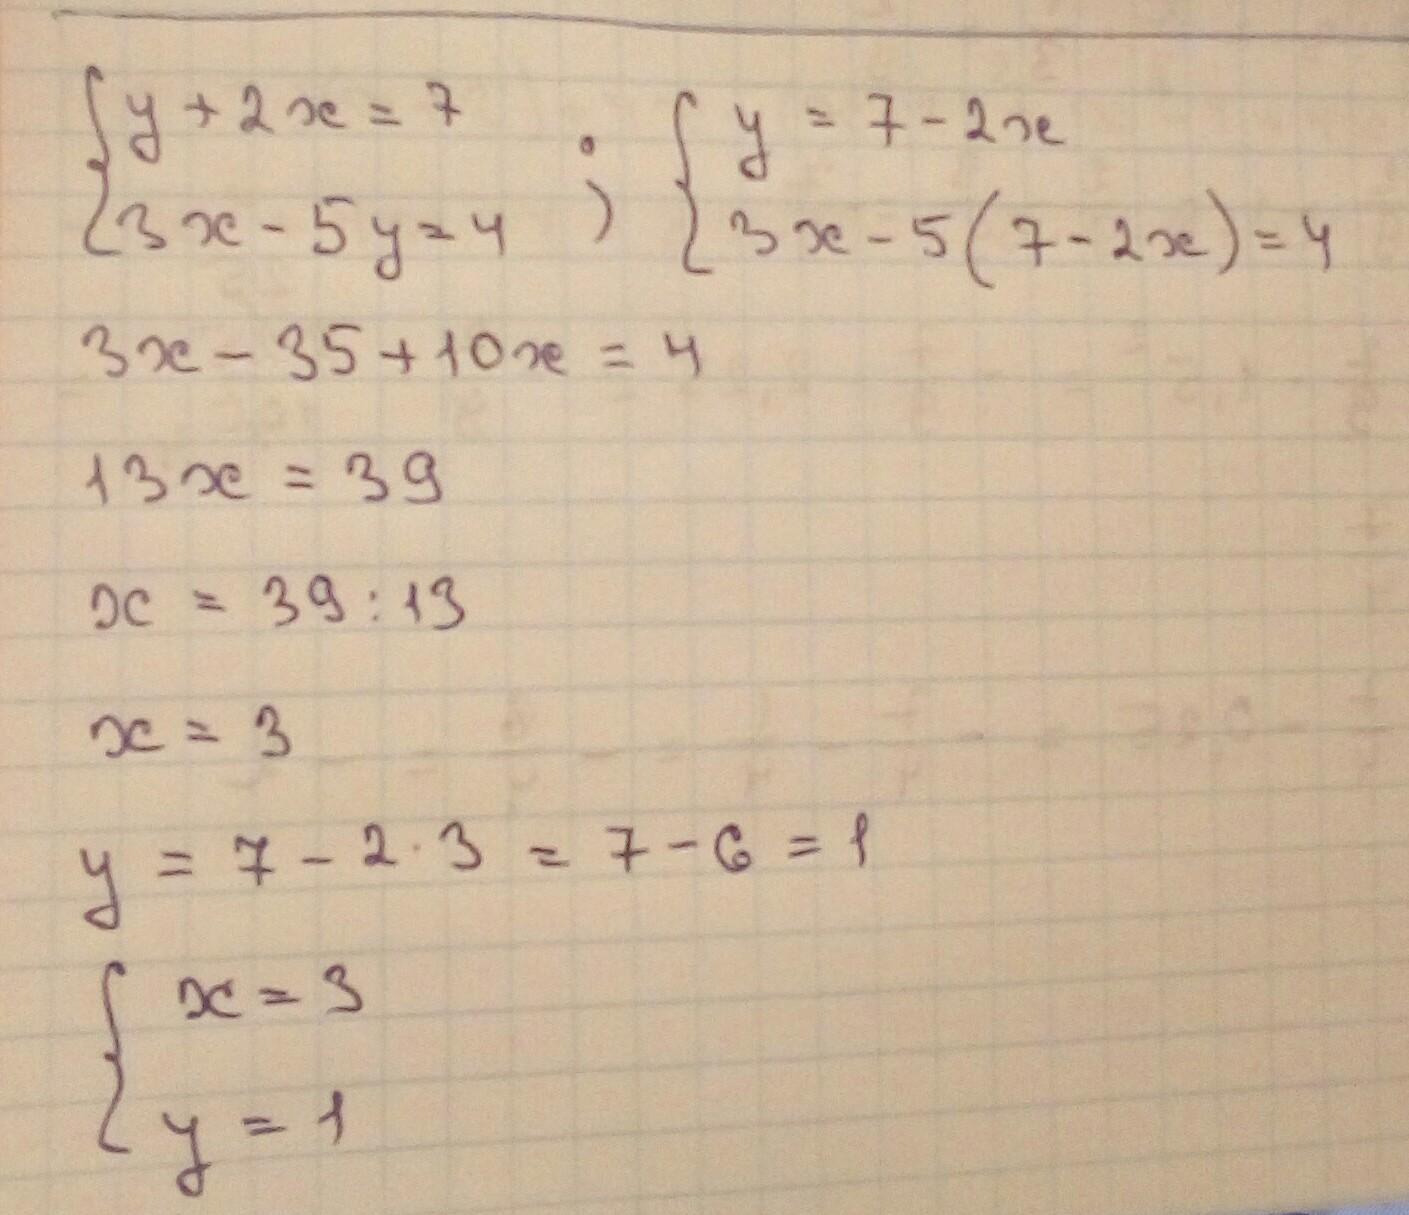 { y + 2x = 7 ; { y = 7 - 2x
{ 3x - 5y = 4 { 3x - 5(7 - 2x) = 4
3x - 35 + 10x = 4
13x = 39
x = 39 : 13
x = 3
y = 7 - 2 · 3 = 7 - 6 = 1
{ x = 3
{ y = 1